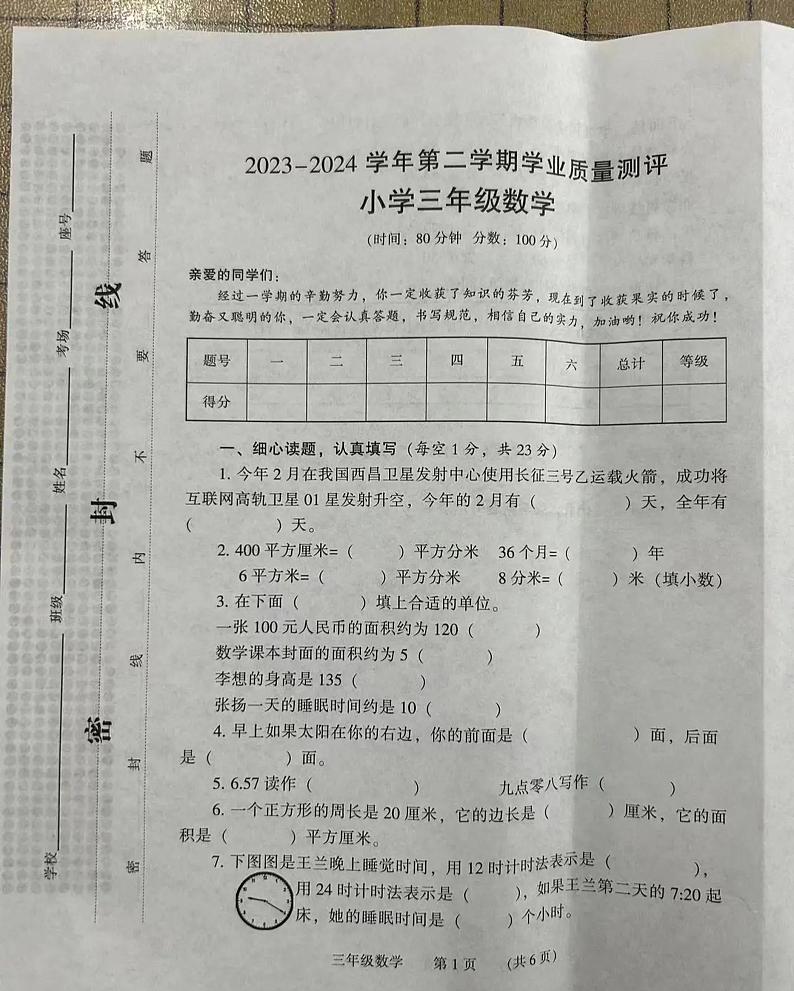 2023-2024 学年第二学期学业质量测评
小学三年级数学
(时间：80分钟 分数：100分)
亲爱的同学们：
经过一学期的辛勤努力，你一定收获了知识的芬芳，现在到了收获果实的时候了，
勤奋又聪明的你，一定会认真答题，书写规范，相信自己的实力，加油哟！祝你成功！
题号 一 二 三 四 五 六 总计 等级
得分
一、细心读题，认真填写（每空1分，共23分）
1. 今年2月在我国西昌卫星发射中心使用长征三号乙运载火箭，成功将
互联网高轨卫星01星发射升空，今年的2月有（ ）天，全年有
（ ）天。
2. 400平方厘米=（ ）平方分米 36个月=（ ）年
6平方米=（ ）平方分米 8分米=（ ）米（填小数）
3. 在下面（ ）填上合适的单位。
一张100元人民币的面积约为120（ ）
数学课本封面的面积约为5（ ）
李想的身高是135（ ）
张扬一天的睡眠时间约是10（ ）
4. 早上如果太阳在你的右边，你的前面是（ ）面，后面
是（ ）面。
5. 6.57读作（ ） 九点零八写作（ ）
6. 一个正方形的周长是20厘米，它的边长是（ ）厘米，它的面
积是（ ）平方厘米。
7. 下图图是王兰晚上睡觉时间，用12时计时法表示是（ ），
用24时计时法表示是（ ），如果王兰第二天的7:20起
床，她的睡眠时间是（ ）个小时。
三年级数学 第1页 (共6页)
学校 班级 姓名 考场 座号
密 封 线
密 封 线 内 不 要 答 题